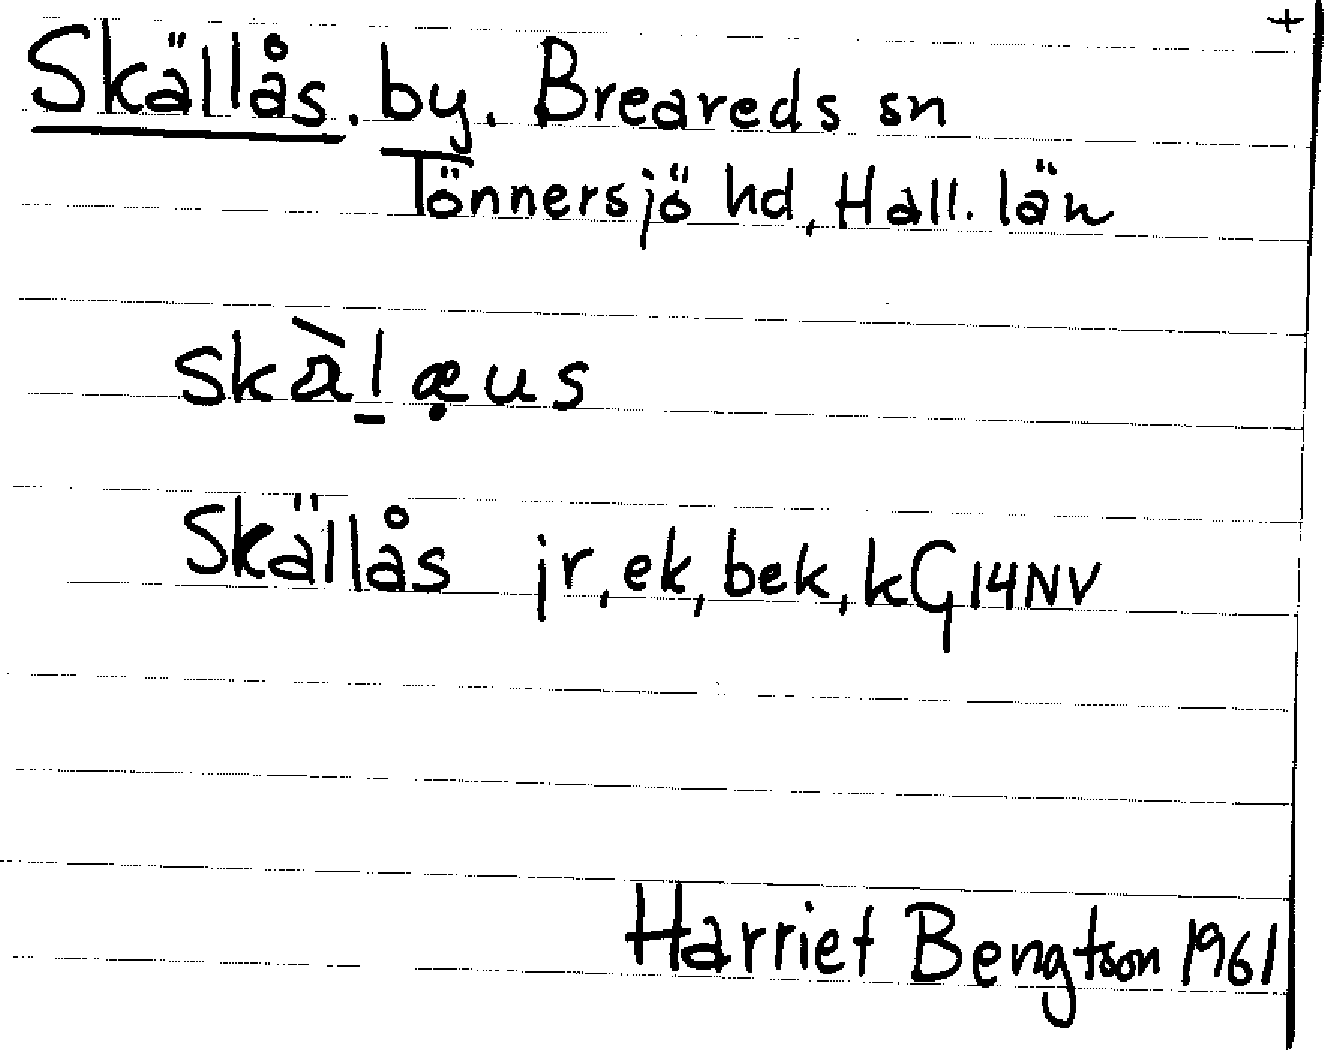 +
Skällås. by. Breareds sn
Tönnersjö hd, Hall. län
skàl̠æ̣us
Skällås jr, ek, bek, kG14NV
Harriet Bengtson 1961